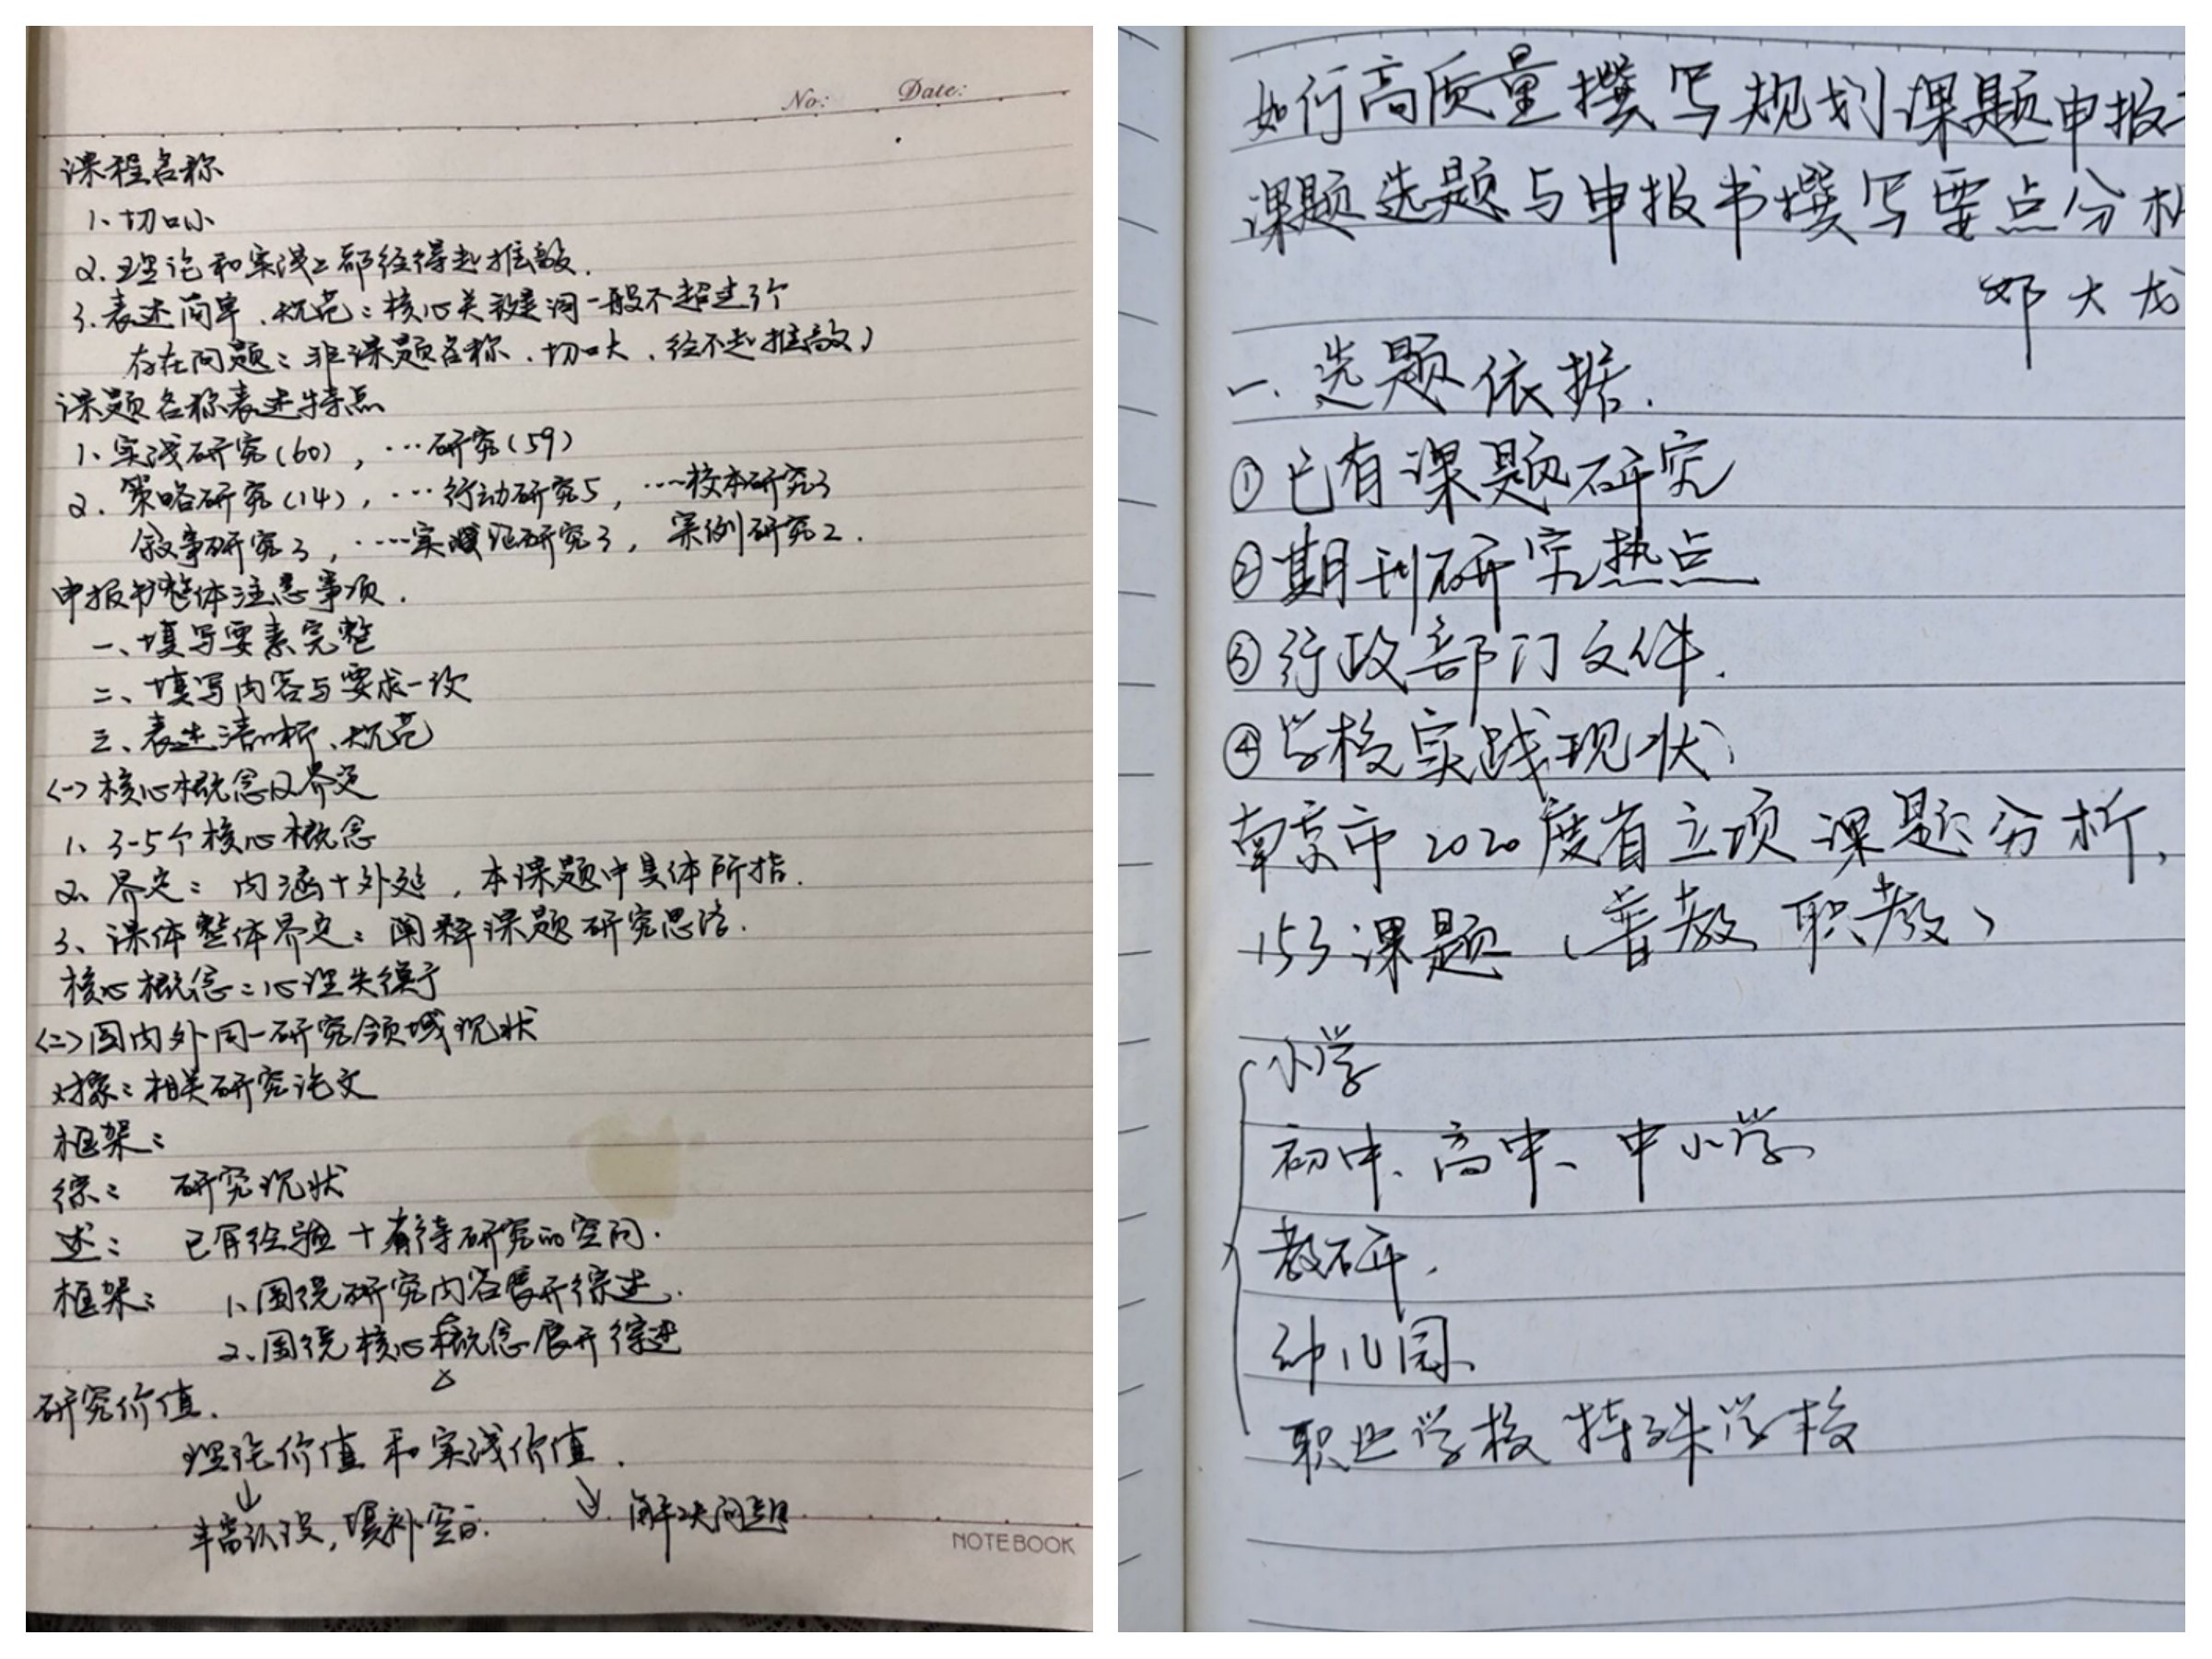 No: Date:
课程名称
1、切口小
2. 理论和实践上都经得起推敲.
3. 表述简单、规范：核心关键词一般不超过3个
存在问题：非课题名称、切口大、经不起推敲）
课题名称表述特点
1、实践研究(60)，…研究(59)
2. 策略研究(14)，…行动研究5，……校本研究3
叙事研究3，……实证研究3，案例研究2.
申报书整体注意事项.
一、填写要素完整
二、填写内容与要求一致
三、表述清晰、规范
(一)核心概念及界定
1、3-5个核心概念
2、界定：内涵+外延，本课题中具体所指.
3、课体整体界定：阐释课题研究思路.
核心概念：心理失衡
(二)国内外同一研究领域现状
对象：相关研究论文
框架：
综： 研究现状
述： 已有经验+有待研究的空间.
框架： 1、围绕研究内容展开综述.
2、围绕核心概念展开综述
研究价值.
理论价值 和实践价值.
↓ ↘
丰富认识，填补空白. 解决问题
NOTEBOOK
如何高质量撰写规划课题申报
课题选题与申报书撰写要点分析
邓大龙
一、选题依据.
①已有课题研究
②期刊研究热点
③行政部门文件.
④学校实践现状、
南京市2020度省立项课题分析,
153课题（普教 职教）
小学
初中、高中、中小学
教研.
幼儿园、
职业学校 特殊学校